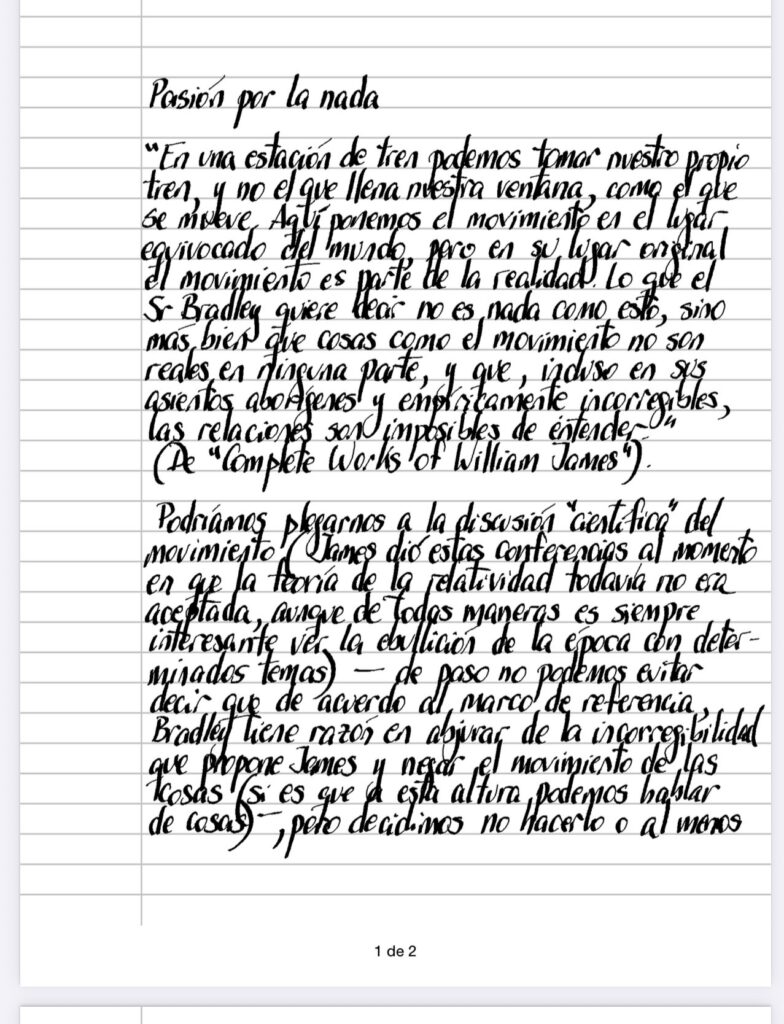 Pasión por la nada
"En una estación de tren podemos tomar nuestro propio
tren, y no el que llena nuestra ventana, como el que
se mueve. Aquí ponemos el movimiento en el lugar
equivocado del mundo, pero en su lugar original
el movimiento es parte de la realidad. Lo que el
Sr Bradley quiere decir no es nada como esto, sino
más bien que cosas como el movimiento no son
reales en ninguna parte, y que, incluso en sus
asientos aborígenes y empíricamente incorregibles,
las relaciones son imposibles de entender."
(De "Complete Works of William James").
Podríamos plegarnos a la discusión "científica" del
movimiento (James dió estas conferencias al momento
en que la teoría de la relatividad todavía no era
aceptada, aunque de todas maneras es siempre
interesante ver la ebullición de la época con deter-
minados temas) — de paso no podemos evitar
decir que de acuerdo al marco de referencia,
Bradley tiene razón en abjurar de la incorregibilidad
que propone James y negar el movimiento de las
cosas (si es que a esta altura podemos hablar
de cosas) —, pero decidimos no hacerlo o al menos
1 de 2